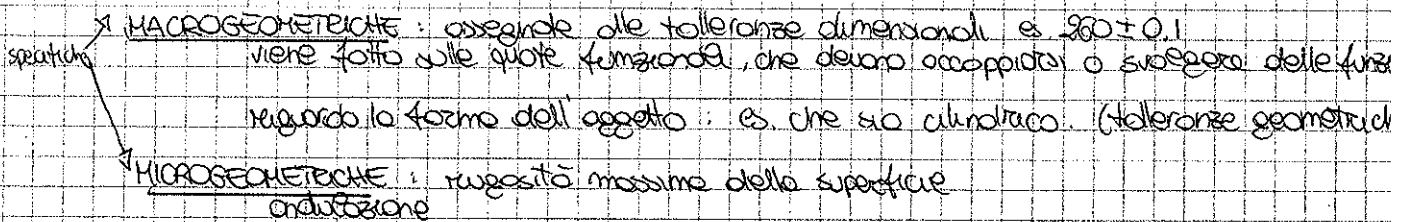 MACROGEOMETRICHE : assegnate alle tolleranze dimensionali es 260 ± 0.1
specifiche
viene fatto sulle quote funzionali, che devono accoppiarsi o svolgere delle funz
riguardo la forma dell'oggetto : es. che sia cilindrico. (tolleranze geometrich
MICROGEOMETRICHE : rugosità massima della superficie
ondulazione